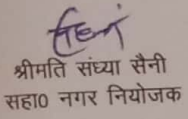 श्रीमति संध्या सैनी
सहा0 नगर नियोजक